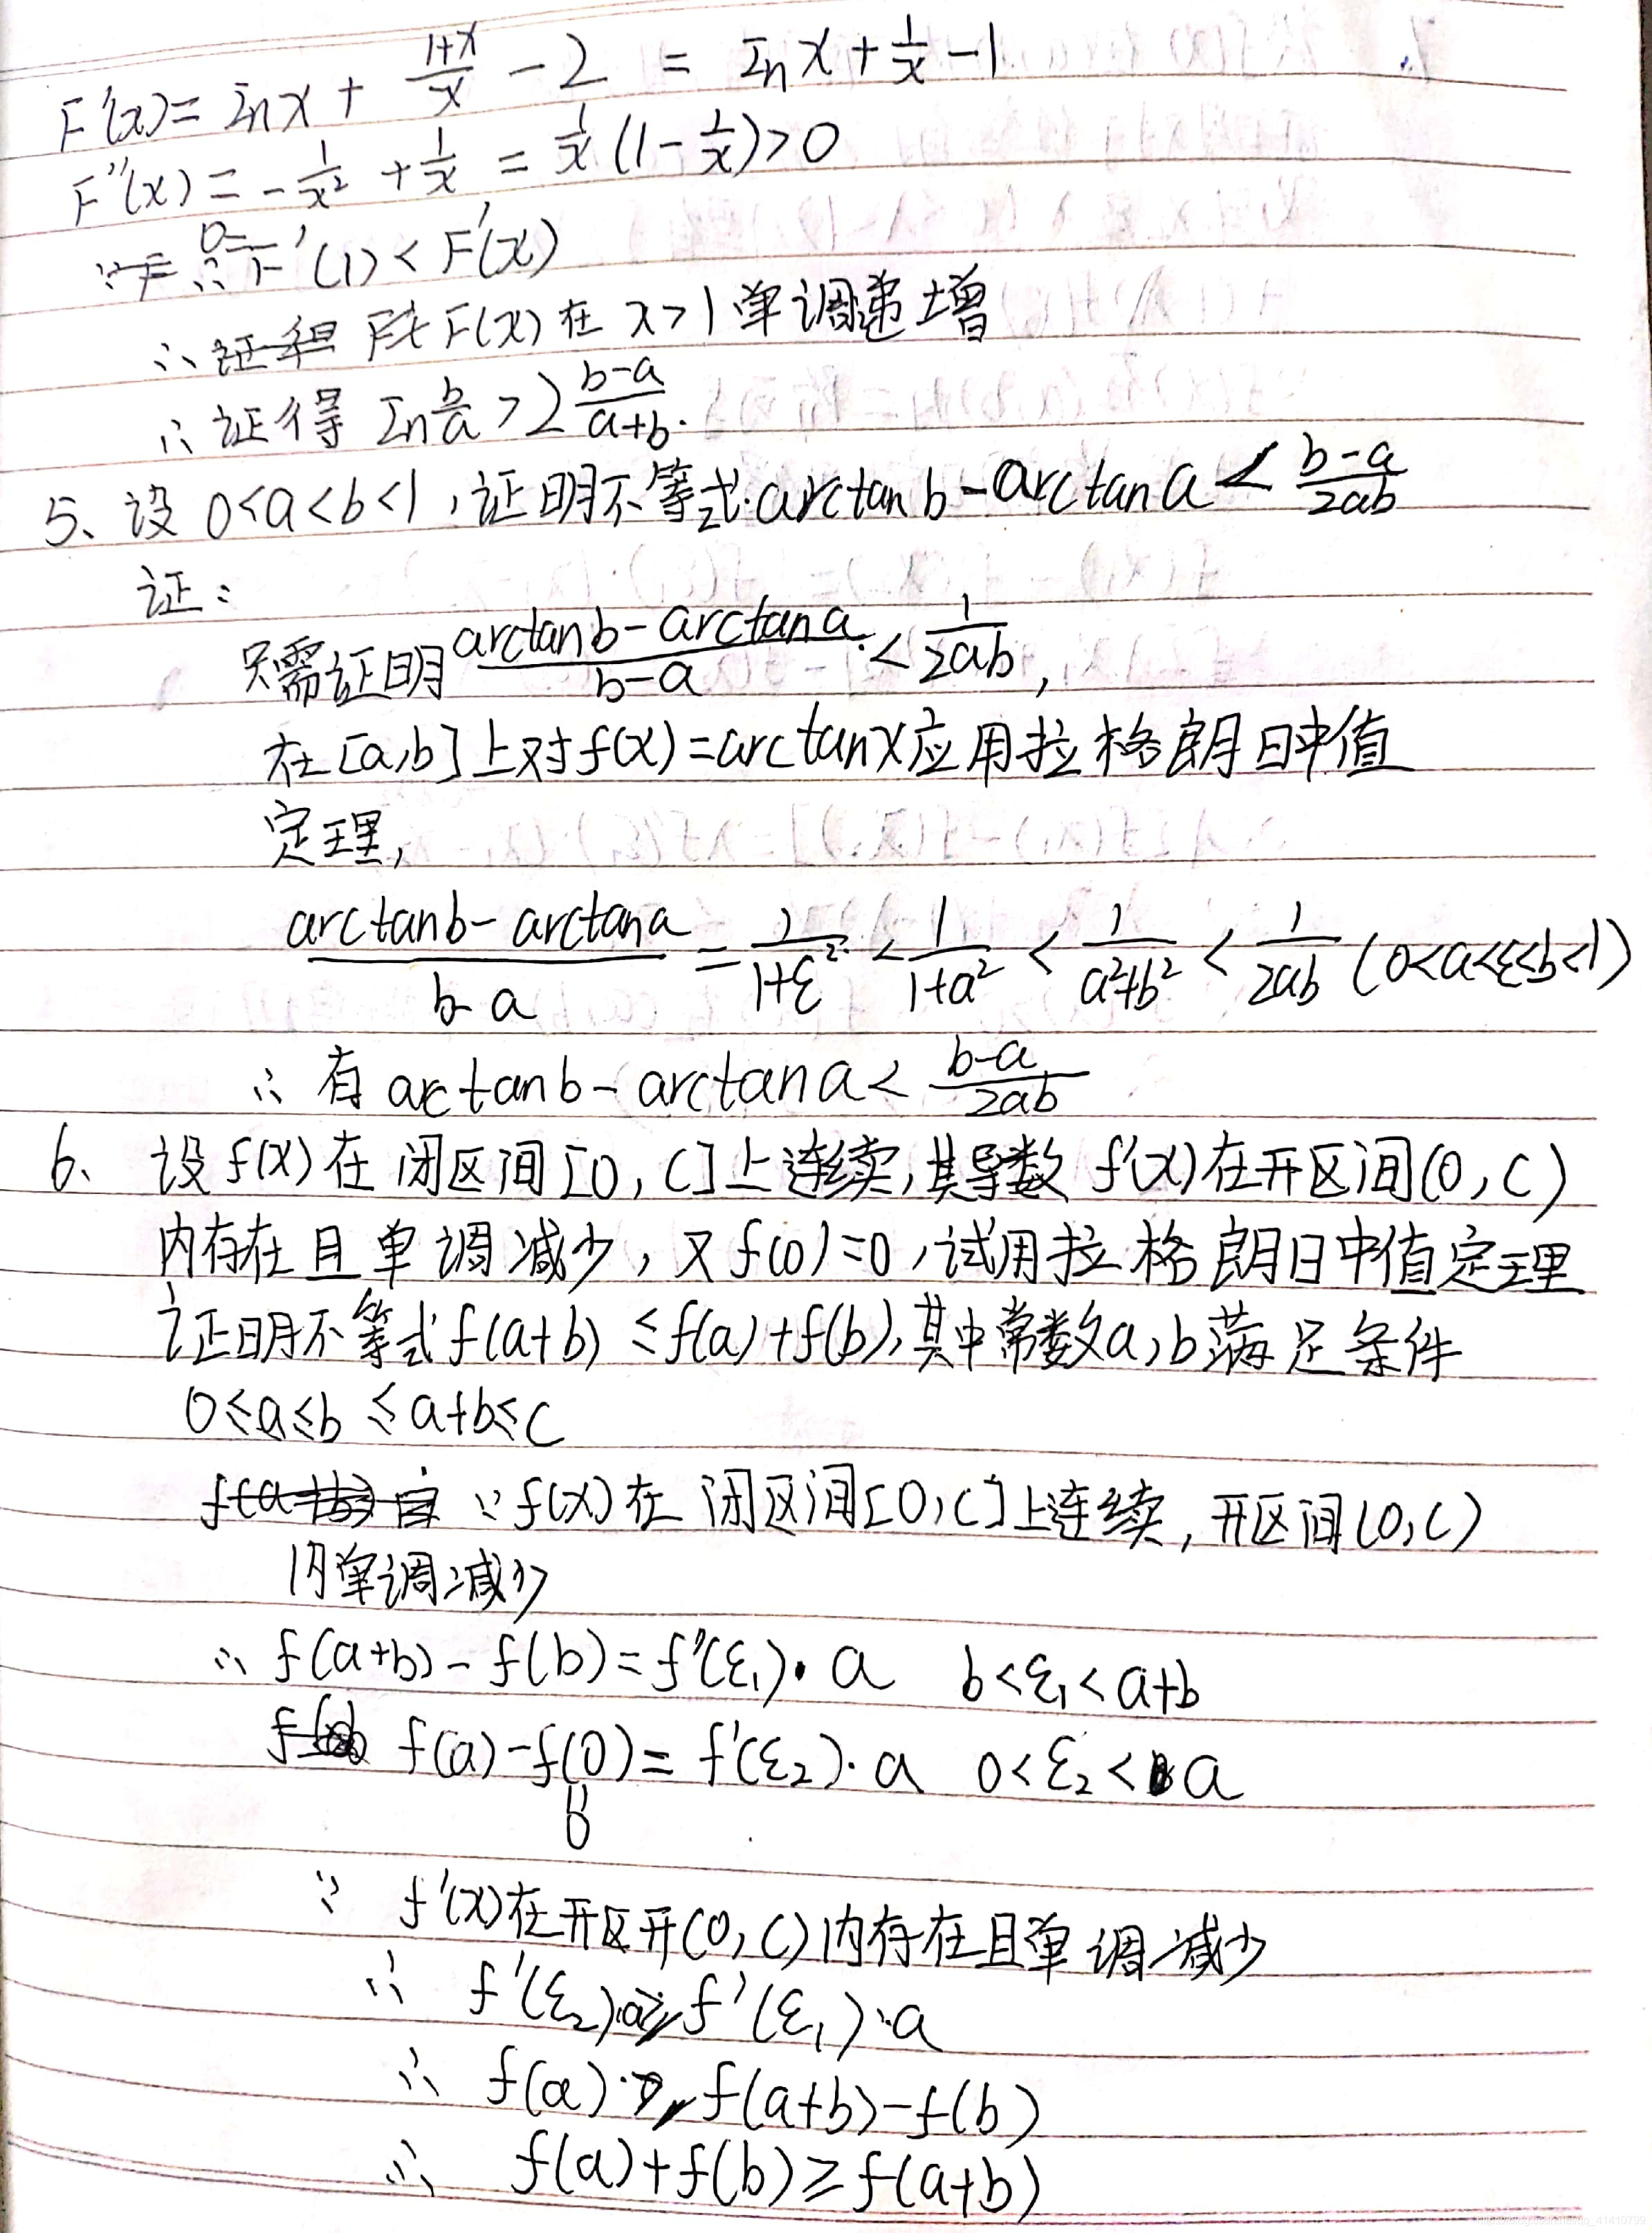 F'(x)= ln x + \frac{1+x}{x} - 2 = ln x + \frac{1}{x} - 1
F''(x) = -\frac{1}{x²} + \frac{1}{x} = \frac{1}{x}(1-\frac{1}{x})>0
∴ 0=F'(1) < F'(x)
∴ F(x) 在 x>1 单调递增
∴ 证得 ln\frac{b}{a} > 2\frac{b-a}{a+b}.
5、设 0<a<b<1,证明不等式:arctan b-arctan a < \frac{b-a}{2ab}
证:
只需证明\frac{arctanb-arctana}{b-a} < \frac{1}{2ab},
在[a,b]上对f(x)=arctanx应用拉格朗日中值
定理,
\frac{arctanb-arctana}{b-a} = \frac{1}{1+ε²} < \frac{1}{1+a²} < \frac{1}{a²+b²} < \frac{1}{2ab} (0<a<ε<b<1)
∴ 有 arctanb-arctana< \frac{b-a}{2ab}
6、设f(x)在闭区间[0,C]上连续,其导数f'(x)在开区间(0,C)
内存在且单调减少,又f(0)=0,试用拉格朗日中值定理
证明不等式f(a+b)≤f(a)+f(b),其中常数a,b满足条件
0≤a≤b≤a+b≤C
∵f(x)在闭区间[0,C]上连续,开区间(0,C)
内单调减少
∴ f(a+b)-f(b)=f'(ε₁)·a b<ε₁<a+b
f(a)-f(0)=f'(ε₂)·a 0<ε₂<a
0
∵ f'(x)在开区开(0,C)内存在且单调减少
∴ f'(ε₂)·a≥f'(ε₁)·a
∴ f(a)≥f(a+b)-f(b)
∴ f(a)+f(b)≥f(a+b)